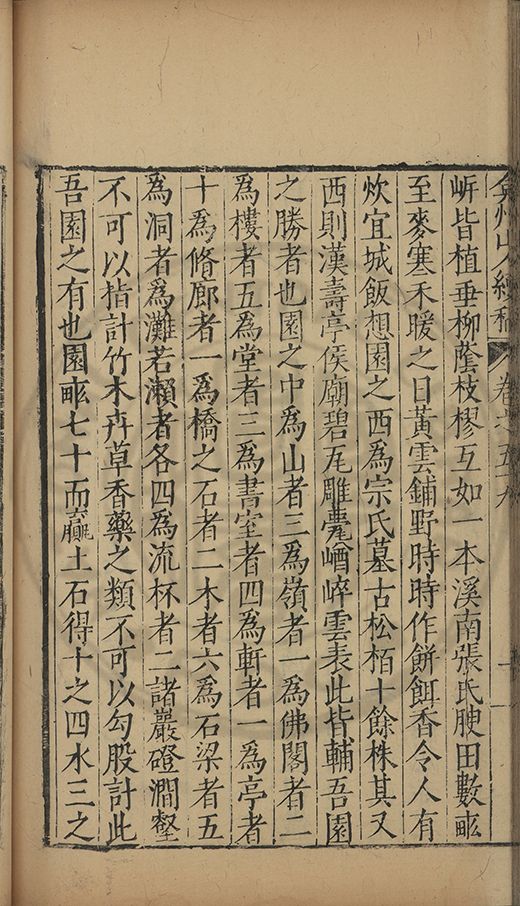 弇州山人續稿 卷之五九
岓皆植垂柳蔭枝樛互如一本溪南張氏腴田數畝
至麥寒禾暖之日黃雲鋪野時時作餅餌香令人有
炊宜城飯想園之西爲宗氏墓古松栢十餘株其又
西則漢壽亭侯廟碧瓦雕甍嶒崪雲表此皆輔吾園
之勝者也園之中爲山者三爲嶺者一爲佛閣者二
爲樓者五爲堂者三爲書室者四爲軒者一爲亭者
十爲脩廊者一爲橋之石者二木者六爲石梁者五
爲洞者爲灘若瀨者各四爲流杯者二諸巖磴澗壑
不可以指計竹木卉草香藥之類不可以勾股計此
吾園之有也園畝七十而贏土石得十之四水三之